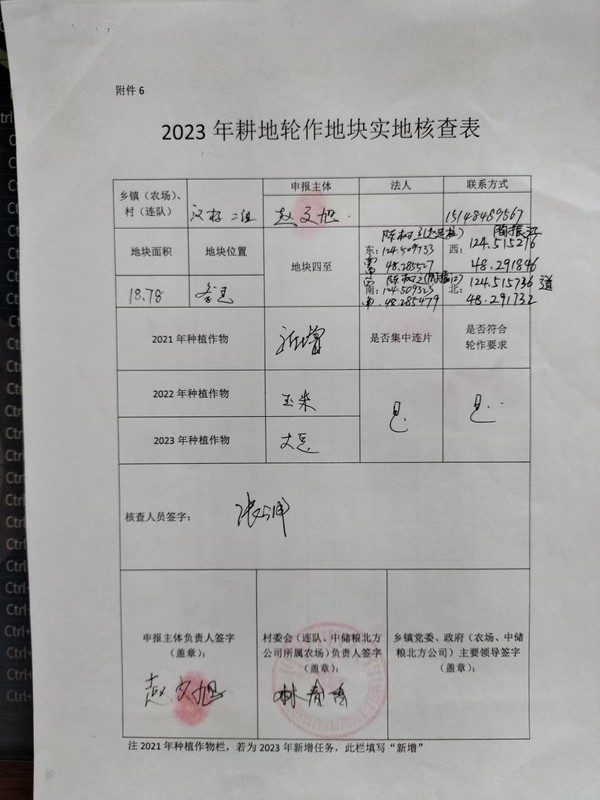 附件 6
2023 年耕地轮作地块实地核查表
乡镇（农场）、
村（连队）
二组
申报主体
赵文旭
法人
联系方式
15148489567
地块面积
地块位置
18.78
地块四至
东：124.509733
48.285527
西：124.515276
48.291846
南：124.509323
48.285479
北：124.515736 道
48.291732
2021 年种植作物
新增
是否集中连片
是否符合
轮作要求
2022 年种植作物
玉米
是
是
2023 年种植作物
大豆
核查人员签字：
申报主体负责人签字
（盖章）：
赵文旭
村委会（连队、中储粮北方
公司所属农场）负责人签字
（盖章）：
乡镇党委、政府（农场、中储
粮北方公司）主要领导签字
（盖章）：
注 2021 年种植作物栏，若为 2023 年新增任务，此栏填写“新增”
Ctrl
Ctrl
Ctrl
Ctrl
Ctrl
Ctrl
Ctrl+
Ctrl+
Ctrl+